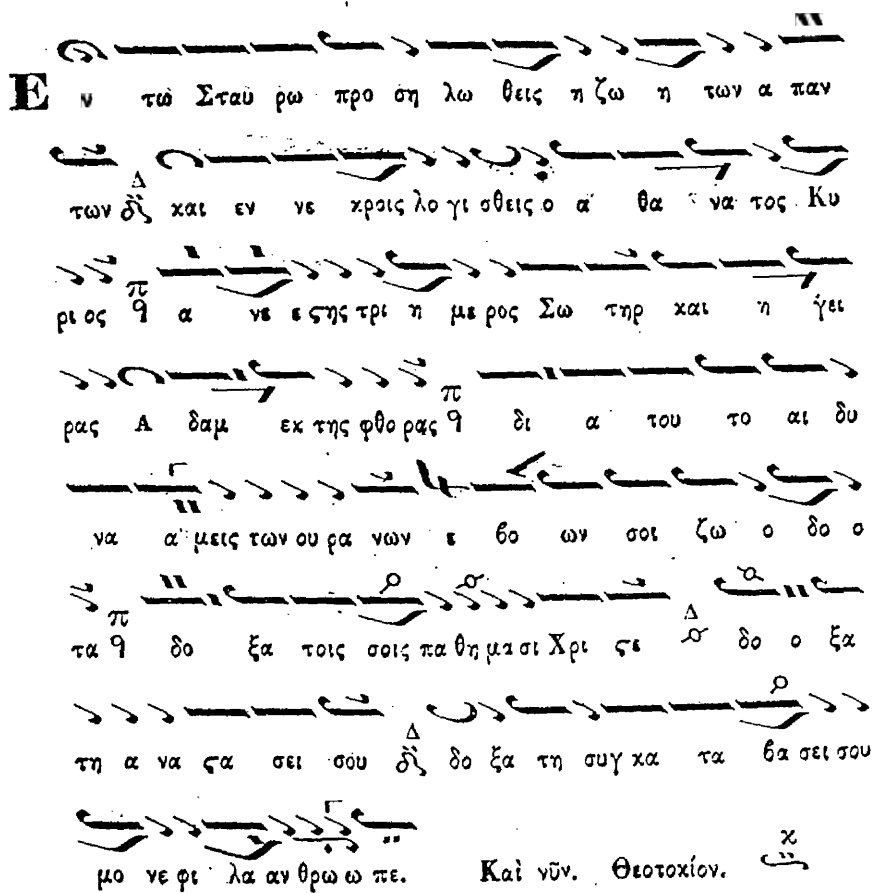 Ε ν τω Σταυ ρω προ ση λω θεις η ζω η των α παν
των και εν νε κροις λο γι σθεις ο α θα να τος Κυ
ρι ος α νε ε ςης τρι η με ρος Σω τηρ και η γει
ρας Α δαμ εκ της φθο ρας δι α του το αι δυ
να α μεις των ου ρα νων ε βο ων σοι ζω ο δο ο
τα δο ξα τοις σοις πα θη μα σι Χρι ςε δο ο ξα
τη α να ςα σει σου δο ξα τη συγ κα τα βα σει σου
μο νε φι λα αν θρω ω πε. Καὶ νῦν. Θεοτοκίον.